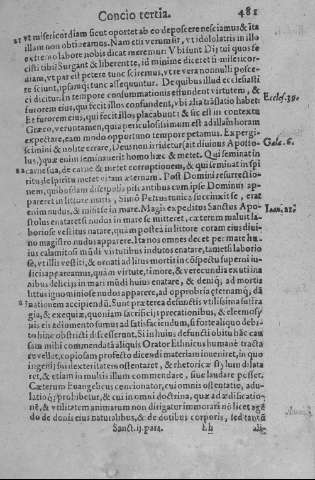 Concio tertia. 481
vt misericordiam sicut oportet ab eo deposcere nesciamus, & ita
illam non obtineamus. Nam etsi verum sit, vt idololatris in illo
extremo labore nobis dicat meremur: Vbi sunt Dij tui quos fe
cisti tibi? Surgant & liberent te, id minimè diceret is misericor-
diam, vt par est petere tunc sciremus, vt re vera nonnulli posce-
re sciunt, ipsamque tunc assequuntur. De quibus illud ecclesiasti
ci dicitur. In tempore consummationis effundent virtutem, &
furorem eius, qui fecit illos confundent, vbi alia traslatio habet: Eccles. 39.
Et furorem eius, qui fecit illos placabunt: & sic est in contextu
Græco, veruntamen, quia periculosissimum est ad illam horam
expectare, eam modo opportuno tempore petamus. Expergi-
scimini & nolite errare, Deus non irridetur, ait diuinus Aposto- Gala. 6.
lus,) quæ enim seminauerit homo hæc & metet. Qui seminat in
carne sua, de carne & metet corruptionem, & qui seminat in spi
ritu de spiritu metet vitam æternam. Post Domini resurrectio-
nem, quibusdam discipulis piscantibus cum ipse Dominus ap-
pareret in littore maris, Simō Petrus tunica succinxit se, erat Ioan. 21.
enim nudus, & misit se in mare. Magis expeditus Sanctus Apo-
stolus enataret si nudus in mare se mitteret, cæterum maluit la-
boriose vestitus natare, quam postea in littore coram eius diui-
no magistro nudus apparere. Ita nos omnes decet per mare hu-
ius calamitosi mūdi virtutibus indutos enatare, tametsi laborio
sè, vt illis vestiti, & ornati ad litus mortis in cōspectu superni iu-
dicis appareamus, quàm virtute, timore, & verecundia exuti ina
nibus delicijs in mari mūdi huius enatare, & deniq; ad mortis
littus ignominiose nudos apparere, ad opprobria eternamq; dā
nationem accipiendū. Sunt præterea defunctis vtilissima suffra
gia, & exequiæ, quoniam sacrificijs precationibus, & eleemosy
nis eis adiumento sumus ad satisfaciendum, si forte aliquo debi-
to hinc obstricti discesserunt. Si in huius defuncti obitu hāc cau
sam mihi commendatā aliquis Orator Ethnicus humanè tracta
re vellet, copiosam profecto dicendi materiam inueniret, in quo
ingenij sui dexteritatem ostentaret, & rhetoricæ styllum dilata
ret, & etiam in multis illum commendare, siue laudare posset.
Cæterum Euangelicus concionator, cui omnis ostentatio, adu-
latioq; prohibetur, & cui in omni doctrina, quæ ad ædificatio-
nē, & vtilitatem animarum non dirigatur immorari nō licet agē
do de donis eius naturalibus, & de dotibus corporis, sed tantū
Sanct. ij. para. hh ali-